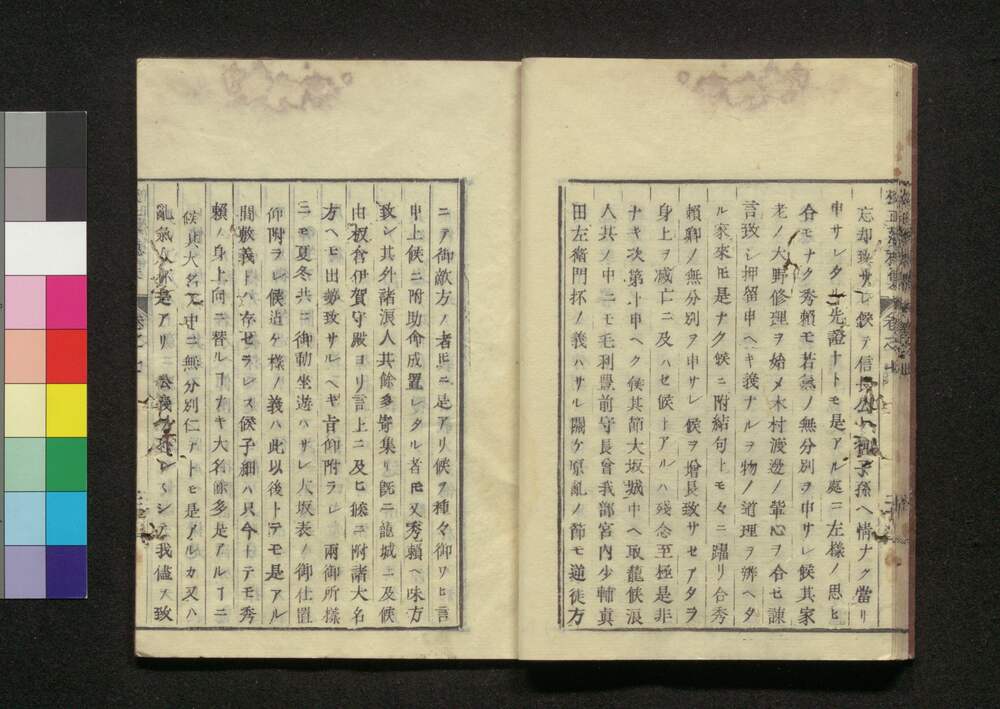 忘却致サレ候テ信長公ノ御子孫ヘ情ナク當リ
申サレタル先證ナトモ是アル處ニ左樣ノ思ヒ
合モナク秀賴モ若氣ノ無分別ヲ申サレ候其家
老ノ大野修理ヲ始メ木村渡邊ノ輩心ヲ合セ諫
言致シ押留申ヘキ義ナルヲ物ノ道理ヲ辨ヘタ
ル家來モ是ナク候ニ附結句トモ々ニ躍リ合秀
賴卿ノ無分別ヲ申サレ候ヲ增長致サセアタラ
身上ヲ滅亡ニ及ハセ候トアルハ殘念至極是非
ナキ次第ト申ヘク候其節大坂城中ヘ取籠候浪
人共ノ中ニモ毛利豐前守長曾我部宮内少輔眞
田左衛門抔ノ義ハサル關ケ原亂ノ節モ逆徒方
ニテ御敵方ノ者𪜈ニ是アリ候ヲ種々御ワヒ言
申上候ニ附助命成置レタル者モ又秀賴ヘ味方
致シ其外諸浪人共餘多寄集リ既ニ籠城ニ及候
由板倉伊賀守殿ヨリ言上ニ及ヒ候ニ附諸大名
方ヘモ出勢致サルヘキ旨仰附ラレ兩御所樣
ニモ夏冬共ニ御動坐遊ハサレ大坂表ノ御仕置
仰附ラレ候造ケ樣ノ義ハ此以後トテモ是アル
間敷義トハ存セラレス候子細ハ只今トテモ秀
賴ノ身上向ニ替ルヿナキ大名餘多是アルヿニ
候其大名ノ中ニ無分別仁アトモ是アルカ又ハ
亂氣人抔是アリ公義ヲ輕シシテ我儘ヲ致